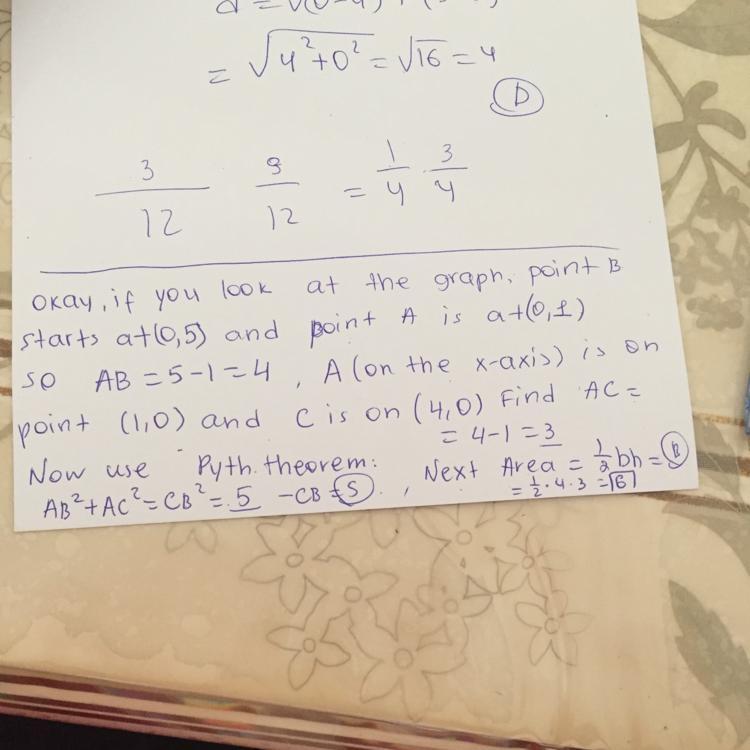 = √4²+0² = √16 = 4
D
3/12 9/12 = 1/4 · 3/4
okay, if you look at the graph, point B
starts at (0,5) and point A is at (0,1)
so AB = 5-1 = 4, A (on the x-axis) is on
point (1,0) and C is on (4,0) Find AC =
= 4-1 = 3
Now use Pyth. theorem: Next Area = 1/2 bh = B
AB²+AC² = CB² = 5 - CB = 5. , = 1/2 · 4 · 3 = 6